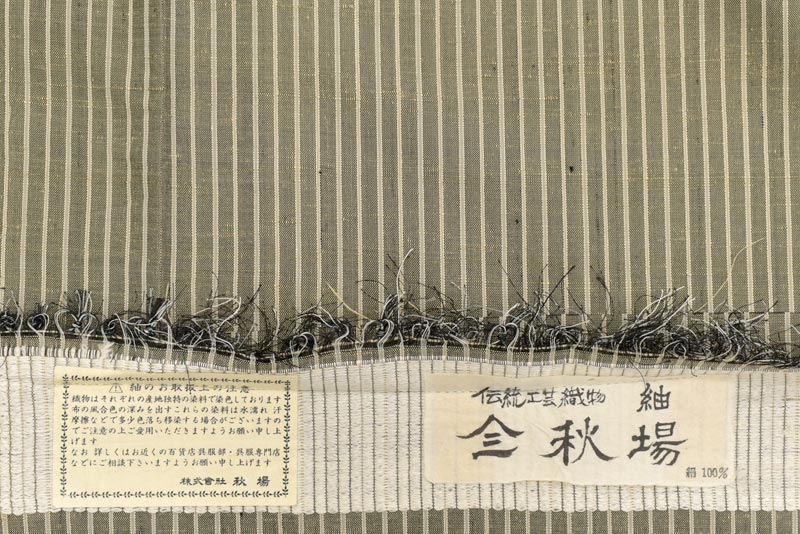 紬のお取扱上の注意
織物はそれぞれの産地独特の染料で染色しております
布の風合色の深みを出すこれらの染料は水濡れ 汗
摩擦などで多少色落ち移染する場合がございますの
でご注意の上ご愛用いただきますようお願い申し上
げます
なお 詳しくはお近くの百貨店呉服部・呉服専門店
などにご相談下さいますようお願い申し上げます
株式會社 秋場
伝統工芸織物 紬
秋場
絹 100%